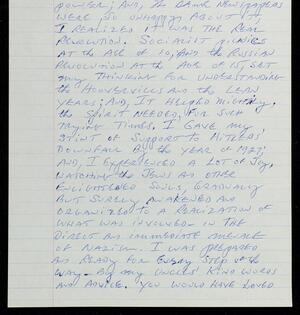 power; and, the same newspapers
were so unhappy about it,
I realized it was the real
revolution. Socialist
at the age of 10, and the Russian
Revolution at the age of 15, set
my thinking for understanding
the Hoovervilles and the lean
years; and, it helped mightily,
the spirit needed, for such
trying times. I gave my
stint of support to Hitlers'
downfall by the year of 1937;
and, I experienced a lot of joy,
watching the Jews and other
enlightened souls, gradually
but surely, awakened and
organized to a realization of
what was involved in the
direct and immediate menace
of Nazism. I was prepared
and ready for every step of the
way — by my uncles' kind words
and advice. You would have loved